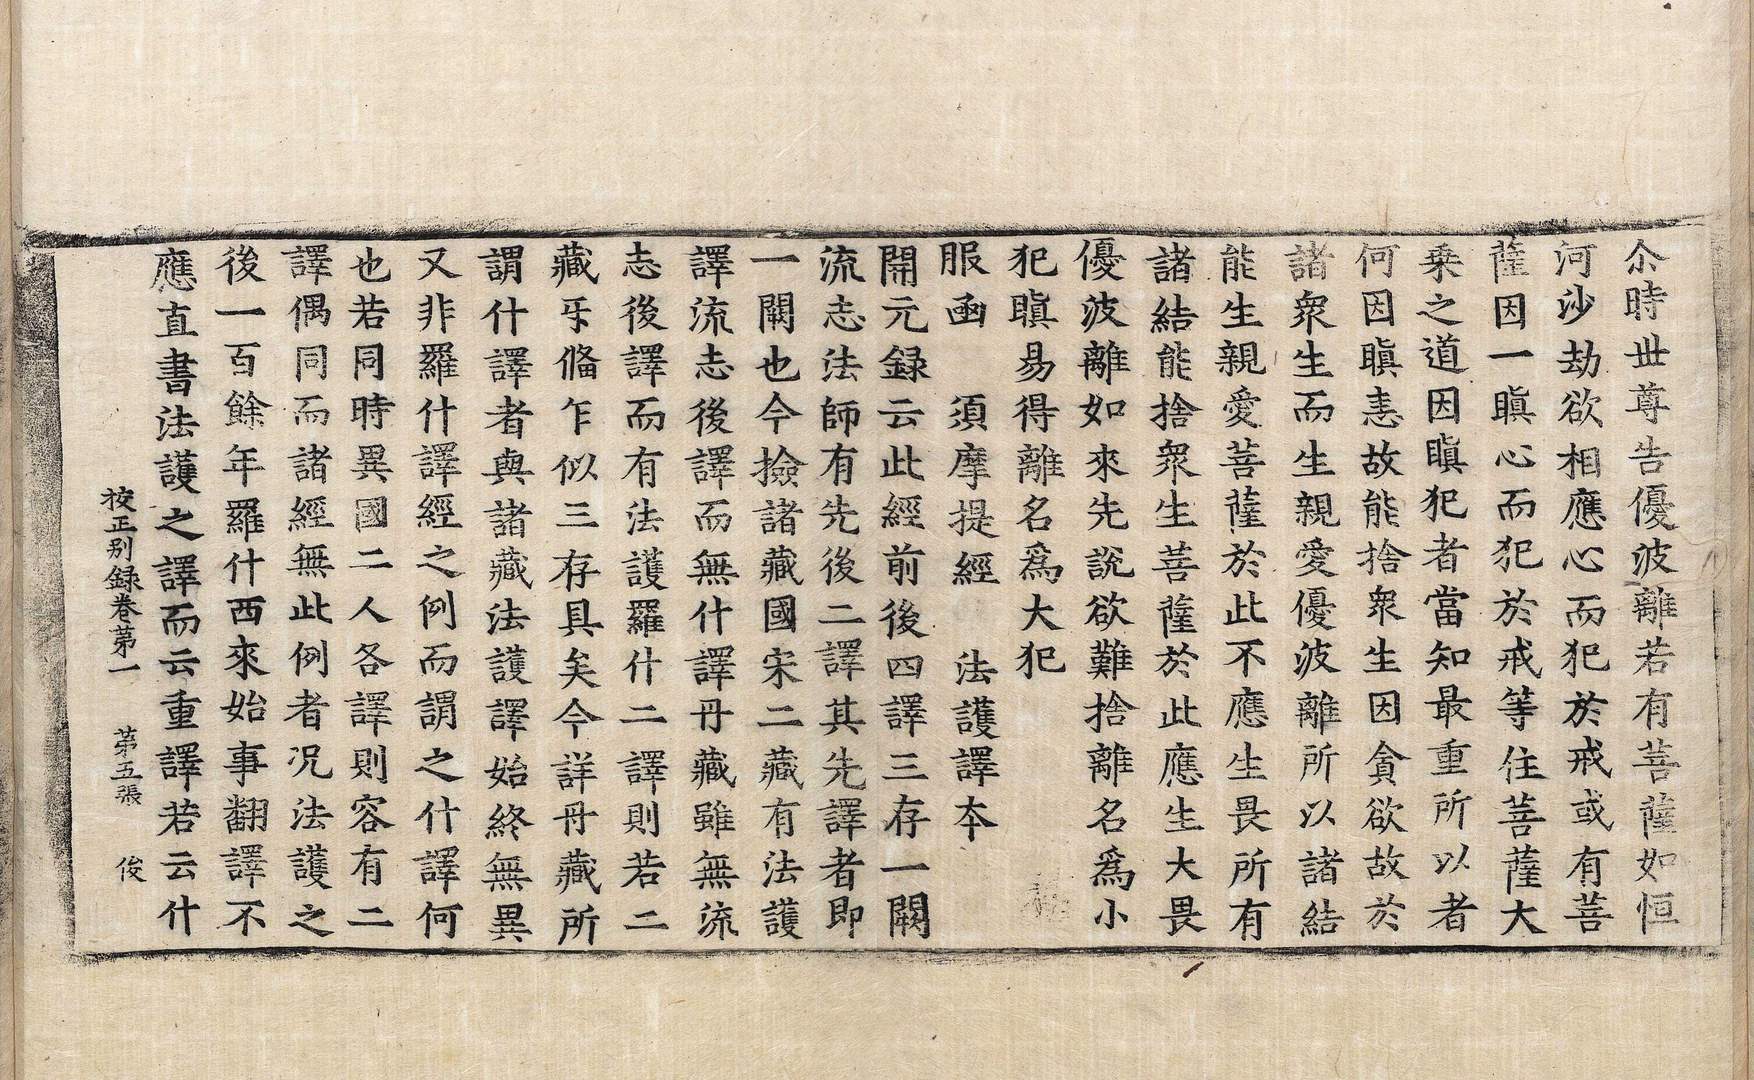 尒時世尊告優波離若有菩薩如恒
河沙劫欲相應心而犯於戒或有菩
薩因一瞋心而犯於戒等住菩薩大
乗之道因瞋犯者當知最重所以者
何因瞋恚故能捨衆生因貪欲故於
諸衆生而生親愛優波離所以諸結
能生親愛菩薩於此不應生畏所有
諸結能捨衆生菩薩於此應生大畏
優波離如來先說欲難捨離名爲小
犯瞋易得離名爲大犯
服函　須摩提經　法護譯夲
開元録云此經前後四譯三存一闕
流志法師有先後二譯其先譯者即
一闕也今撿諸藏國宋二藏有法護
譯流志後譯而無什譯丹藏雖無流
志後譯而有法護羅什二譯則若二
藏㸦俻乍似三存具矣今詳丹藏所
謂什譯者與諸藏法護譯始終無異
又非羅什譯經之例而謂之什譯何
也若同時異國二人各譯則容有二
譯偶同而諸經無此例者况法護之
後一百餘年羅什西來始事翻譯不
應直書法護之譯而云重譯若云什
挍正别録卷第一　第五張　俊